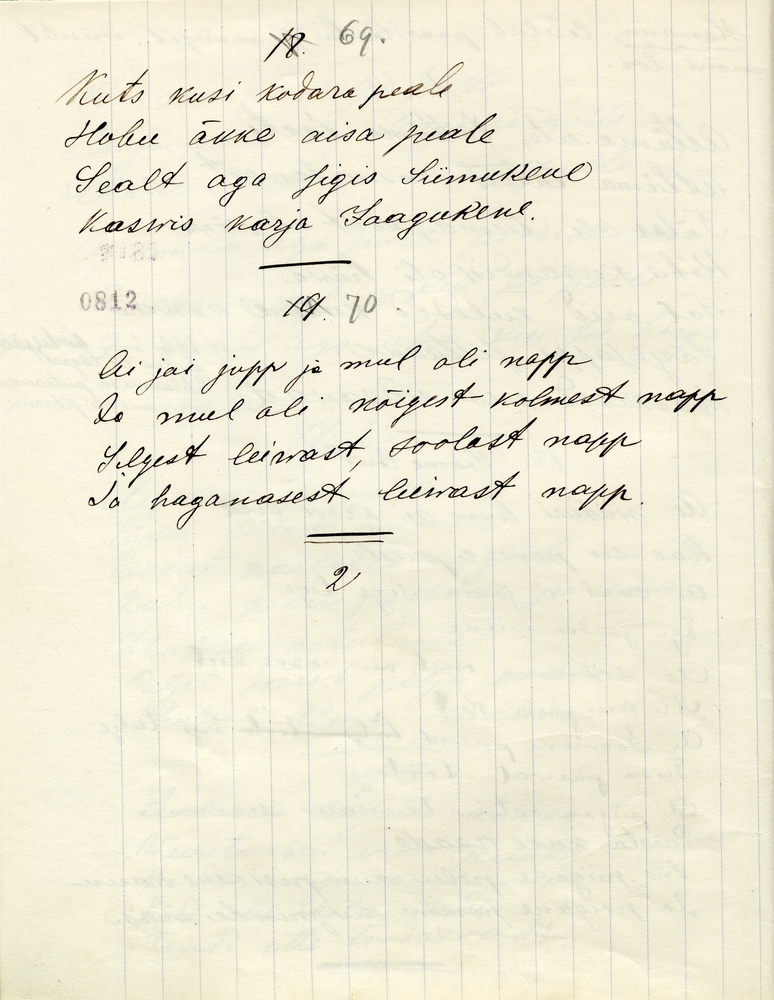 18. 69.
Kuts kusi kodara peale
Hobu äkke aisa peale
Sealt aga sigis Siimukene
Kaswis karja Jaagukene.
0812
19. 70.
Ai jai jupp ja mul oli napp
Ja mul oli kõigest kolmest napp
Silgest leiwast, soolast napp
Ja haganasest leiwast napp.
2